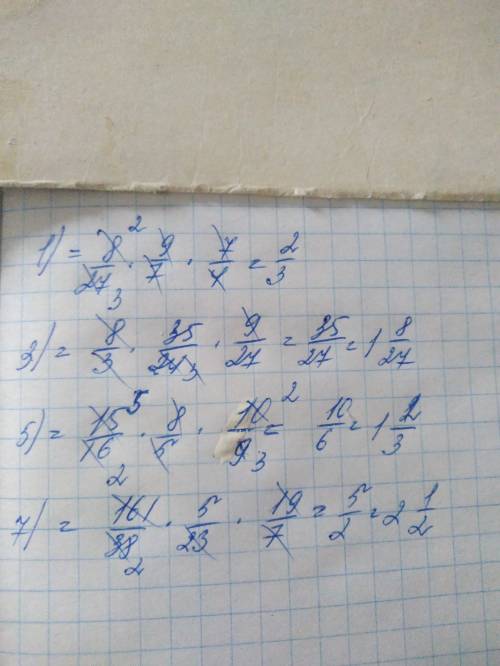 1) = 8/27 2/3 · 9/7 · 7/4 = 2/3
3) = 8/3 · 35/24 3 · 9/27 = 35/27 = 1 8/27
5) = 15/16 5/2 · 8/5 · 10/9 2/3 = 10/6 = 1 2/3
7) = 161/38 2 · 5/23 · 19/7 = 5/2 = 2 1/2